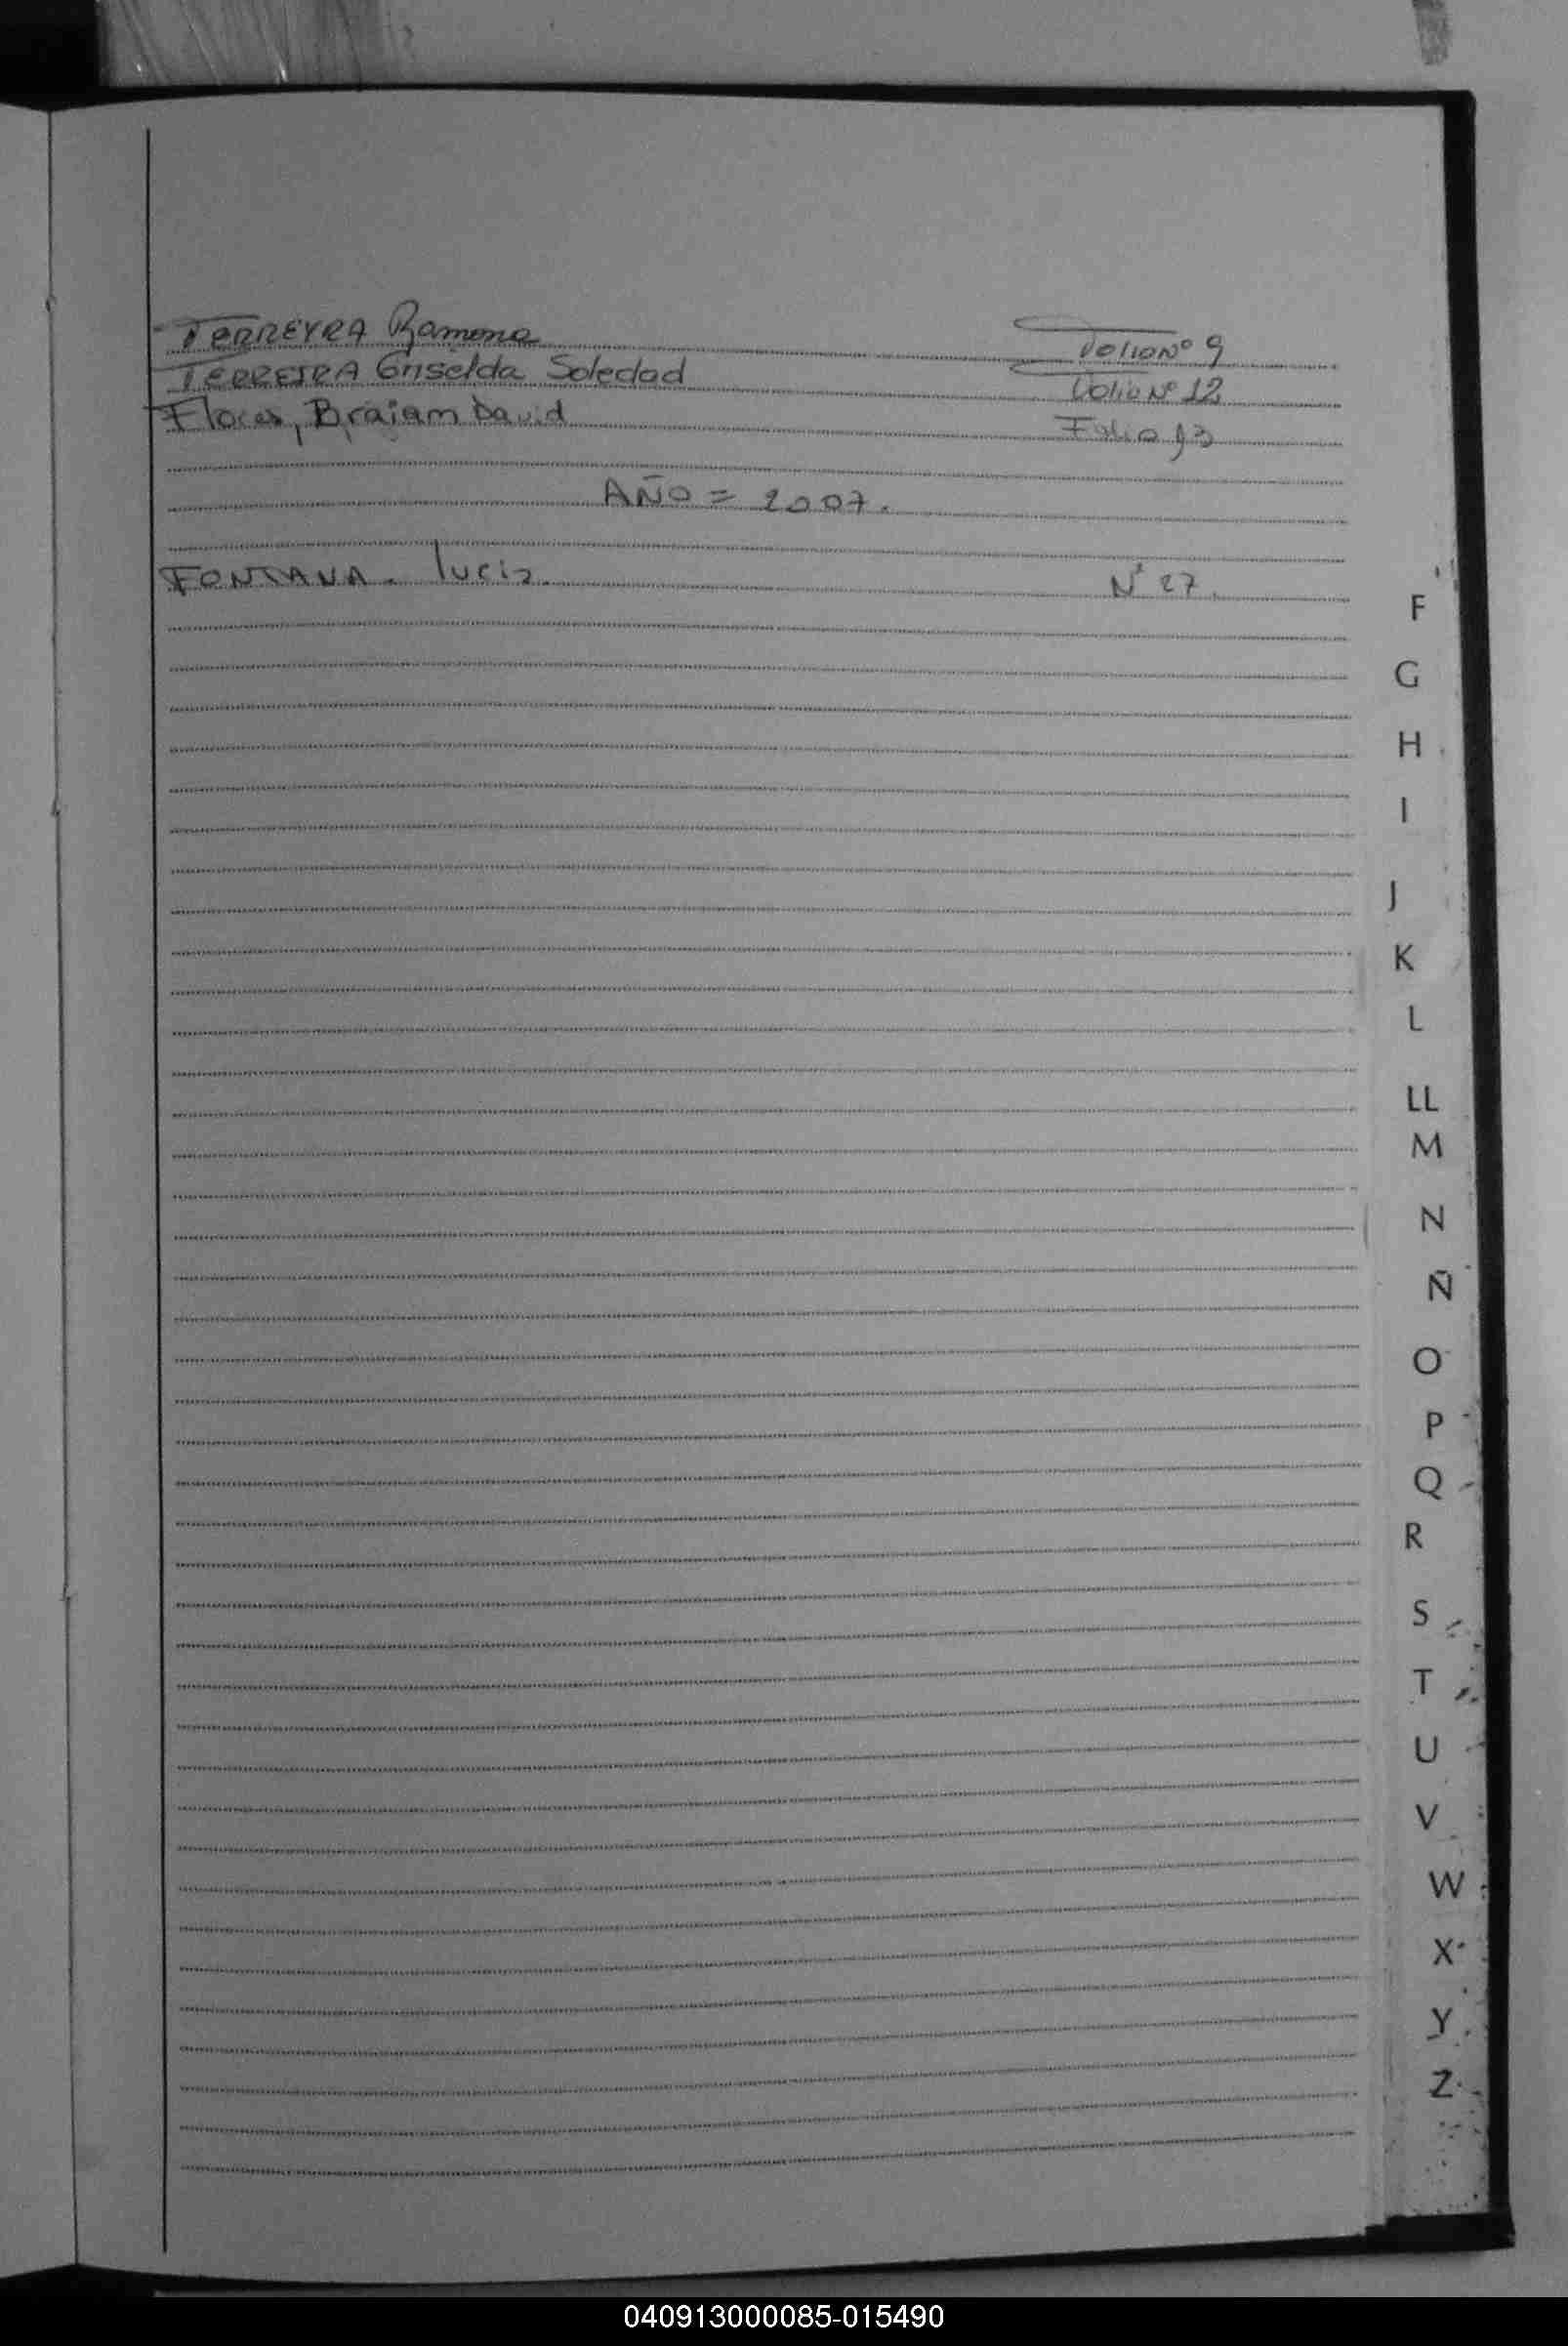 FERREYRA Ramona Folio Nº 9
FERREYRA Griselda Soledad Folio Nº 12
Flores, Brajam David Folio 13
AÑO = 2007.
FONTANA. lucia. Nº 27.
F
G
H
I
J
K
L
LL
M
N
Ñ
O
P
Q
R
S
T
U
V
W
X
Y
Z
040913000085-015490